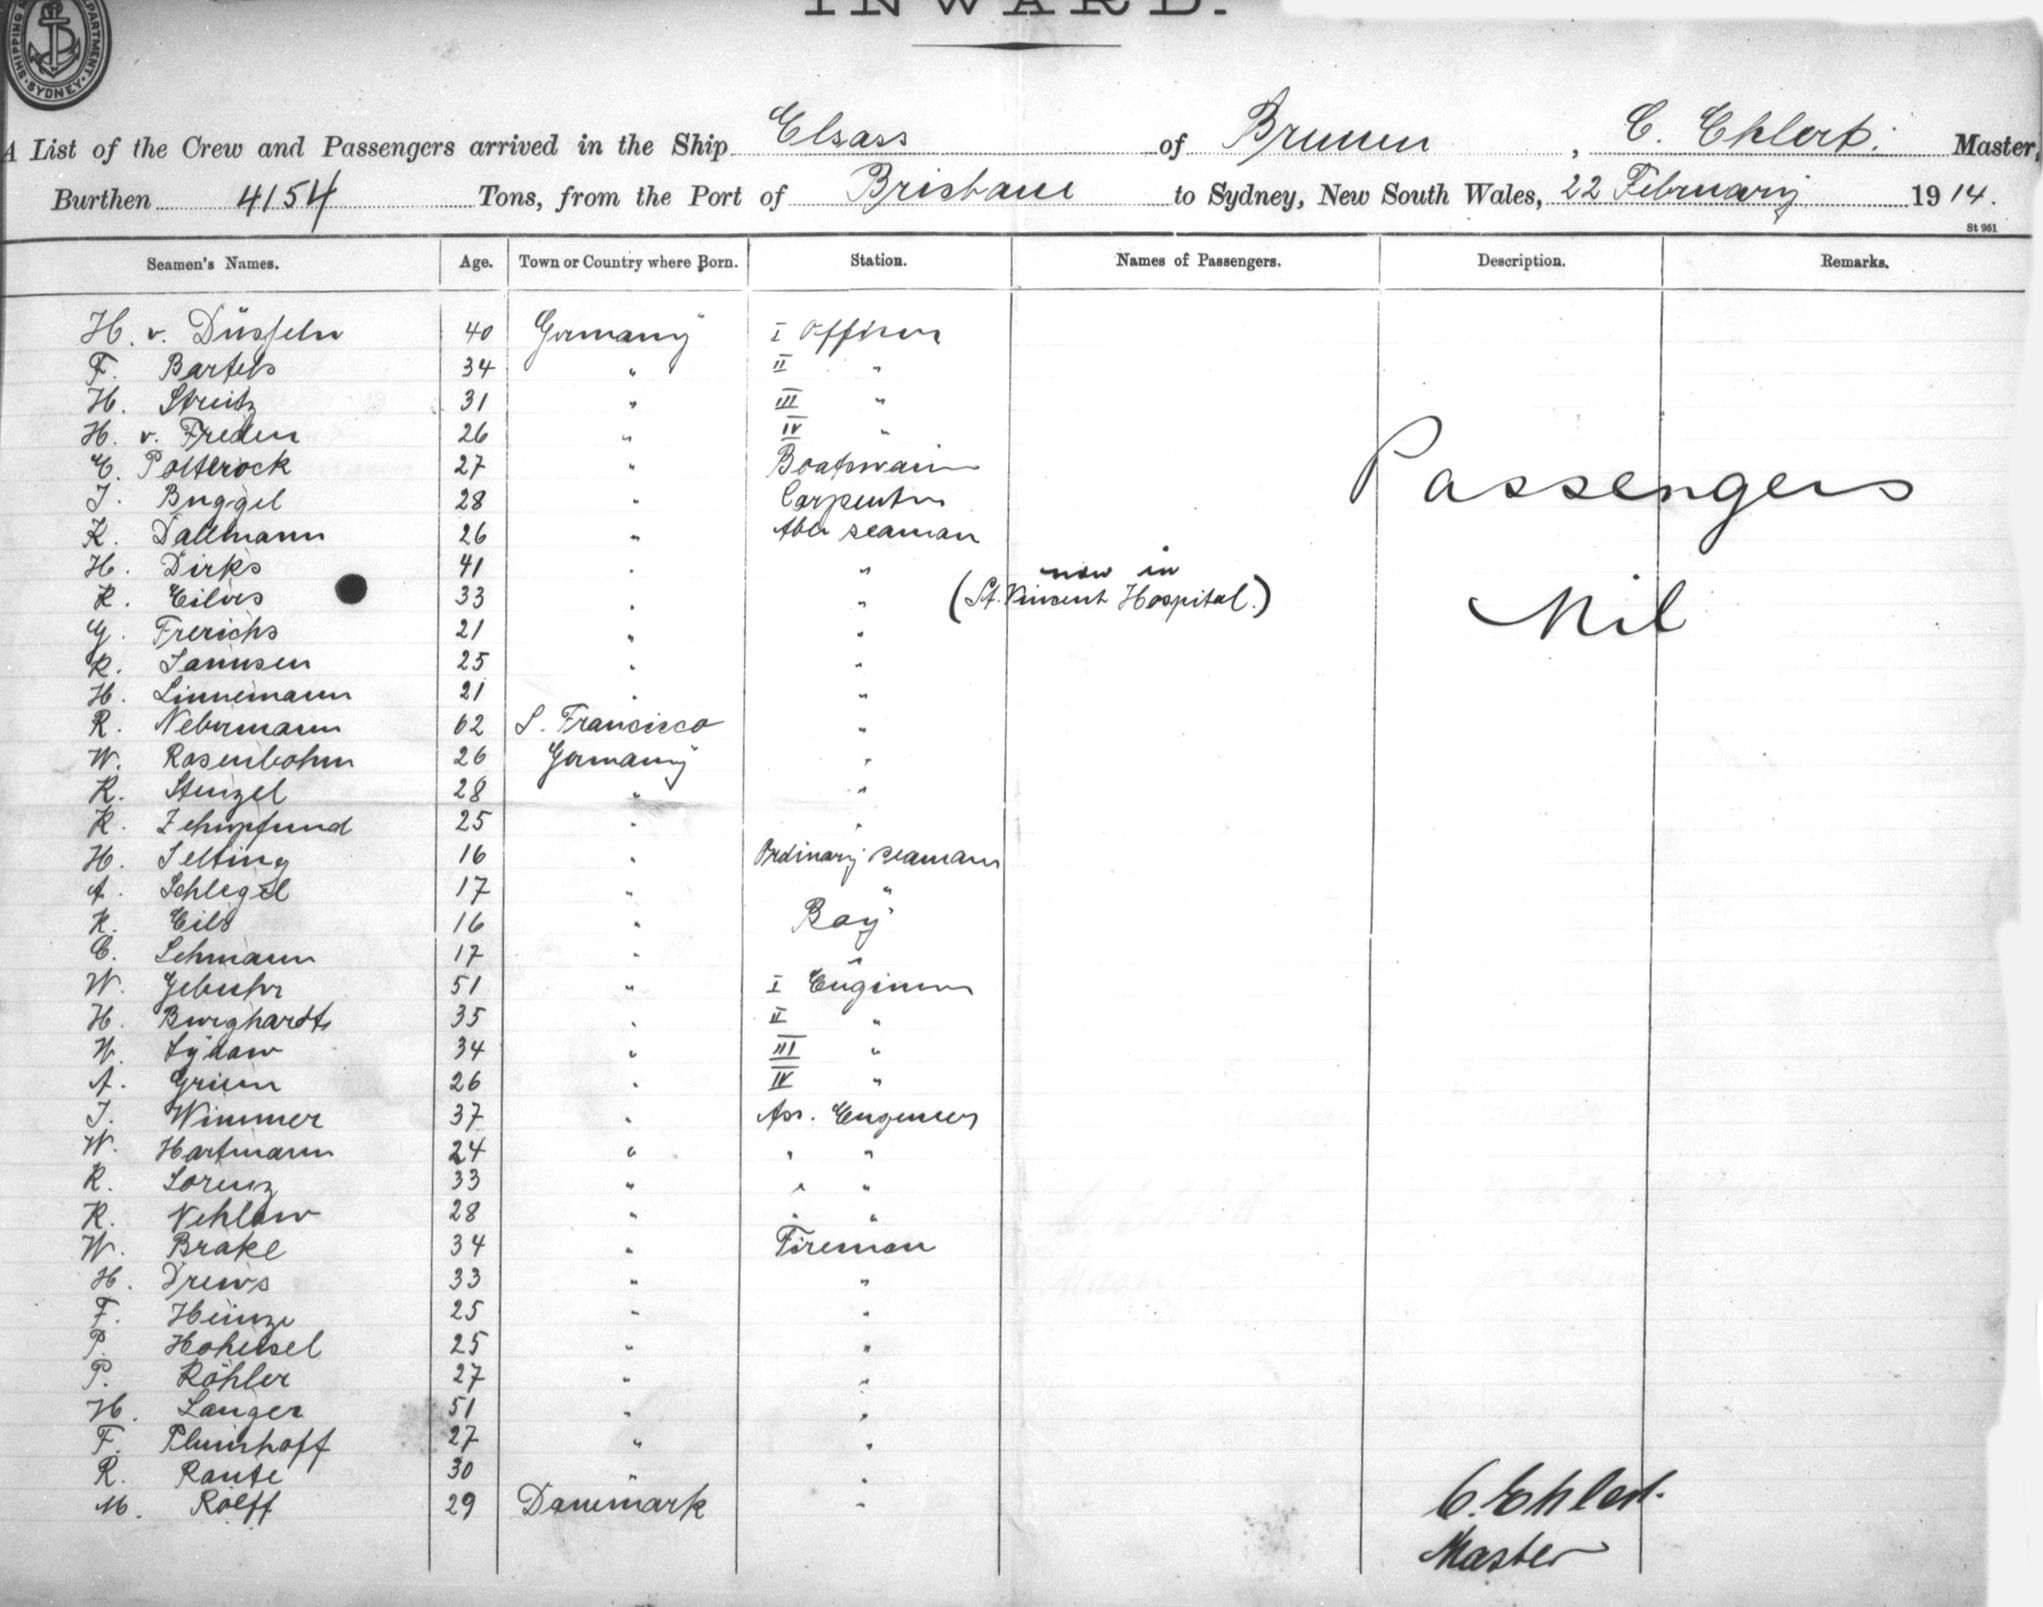 INWARD.
SHIPPING DEPARTMENT. SYDNEY
A List of the Crew and Passengers arrived in the Ship Elsass of Bremen, C. Ehlert. Master,
Burthen 4154 Tons, from the Port of Brisbane to Sydney, New South Wales, 22 February 1914.
St 951
Seamen's Names. Age. Town or Country where Born. Station. Names of Passengers. Description. Remarks.
H. v. Düsseln 40 Germany I Officer
F. Bartels 34 " II "
H. Streitz 31 " III "
H. v. Freden 26 " IV "
E. Polterock 27 " Boatswain
J. Buggel 28 " Carpenter
K. Dallmann 26 " Able seaman
H. Dirks 41 " "
K. Eilers 33 " " (now in St. Vincent Hospital.)
Passengers
Nil
G. Frerichs 21 " "
R. Janussen 25 " "
H. Linnemann 21 " "
R. Nebermann 62 S. Francisco "
W. Rosenbohm 26 Germany "
K. Stenzel 28 " "
K. 25 " "
H. Selting 16 " Ordinary seaman
A. Schlegel 17 " "
K. Eils 16 " Boy
C. Lehmann 17 " "
W. Gebuhr 51 " I Engineer
H. Burghardt 35 " II "
W. Lydow 34 " III "
A. 26 " IV "
J. Wimmer 37 " Ass. Engineer
W. Hartmann 24 " " "
R. Lorenz 33 " " "
K. Nehlow 28 " " "
W. Brake 34 " Fireman
H. Drews 33 " "
F. Heinze 25 " "
P. Hoheisel 25 " "
P. Köhler 27 " "
H. Langer 51 " "
F. Plumhoff 27 " "
R. Raute 30 " "
M. Rolff 29 Danemark "
C. Ehlert.
Master